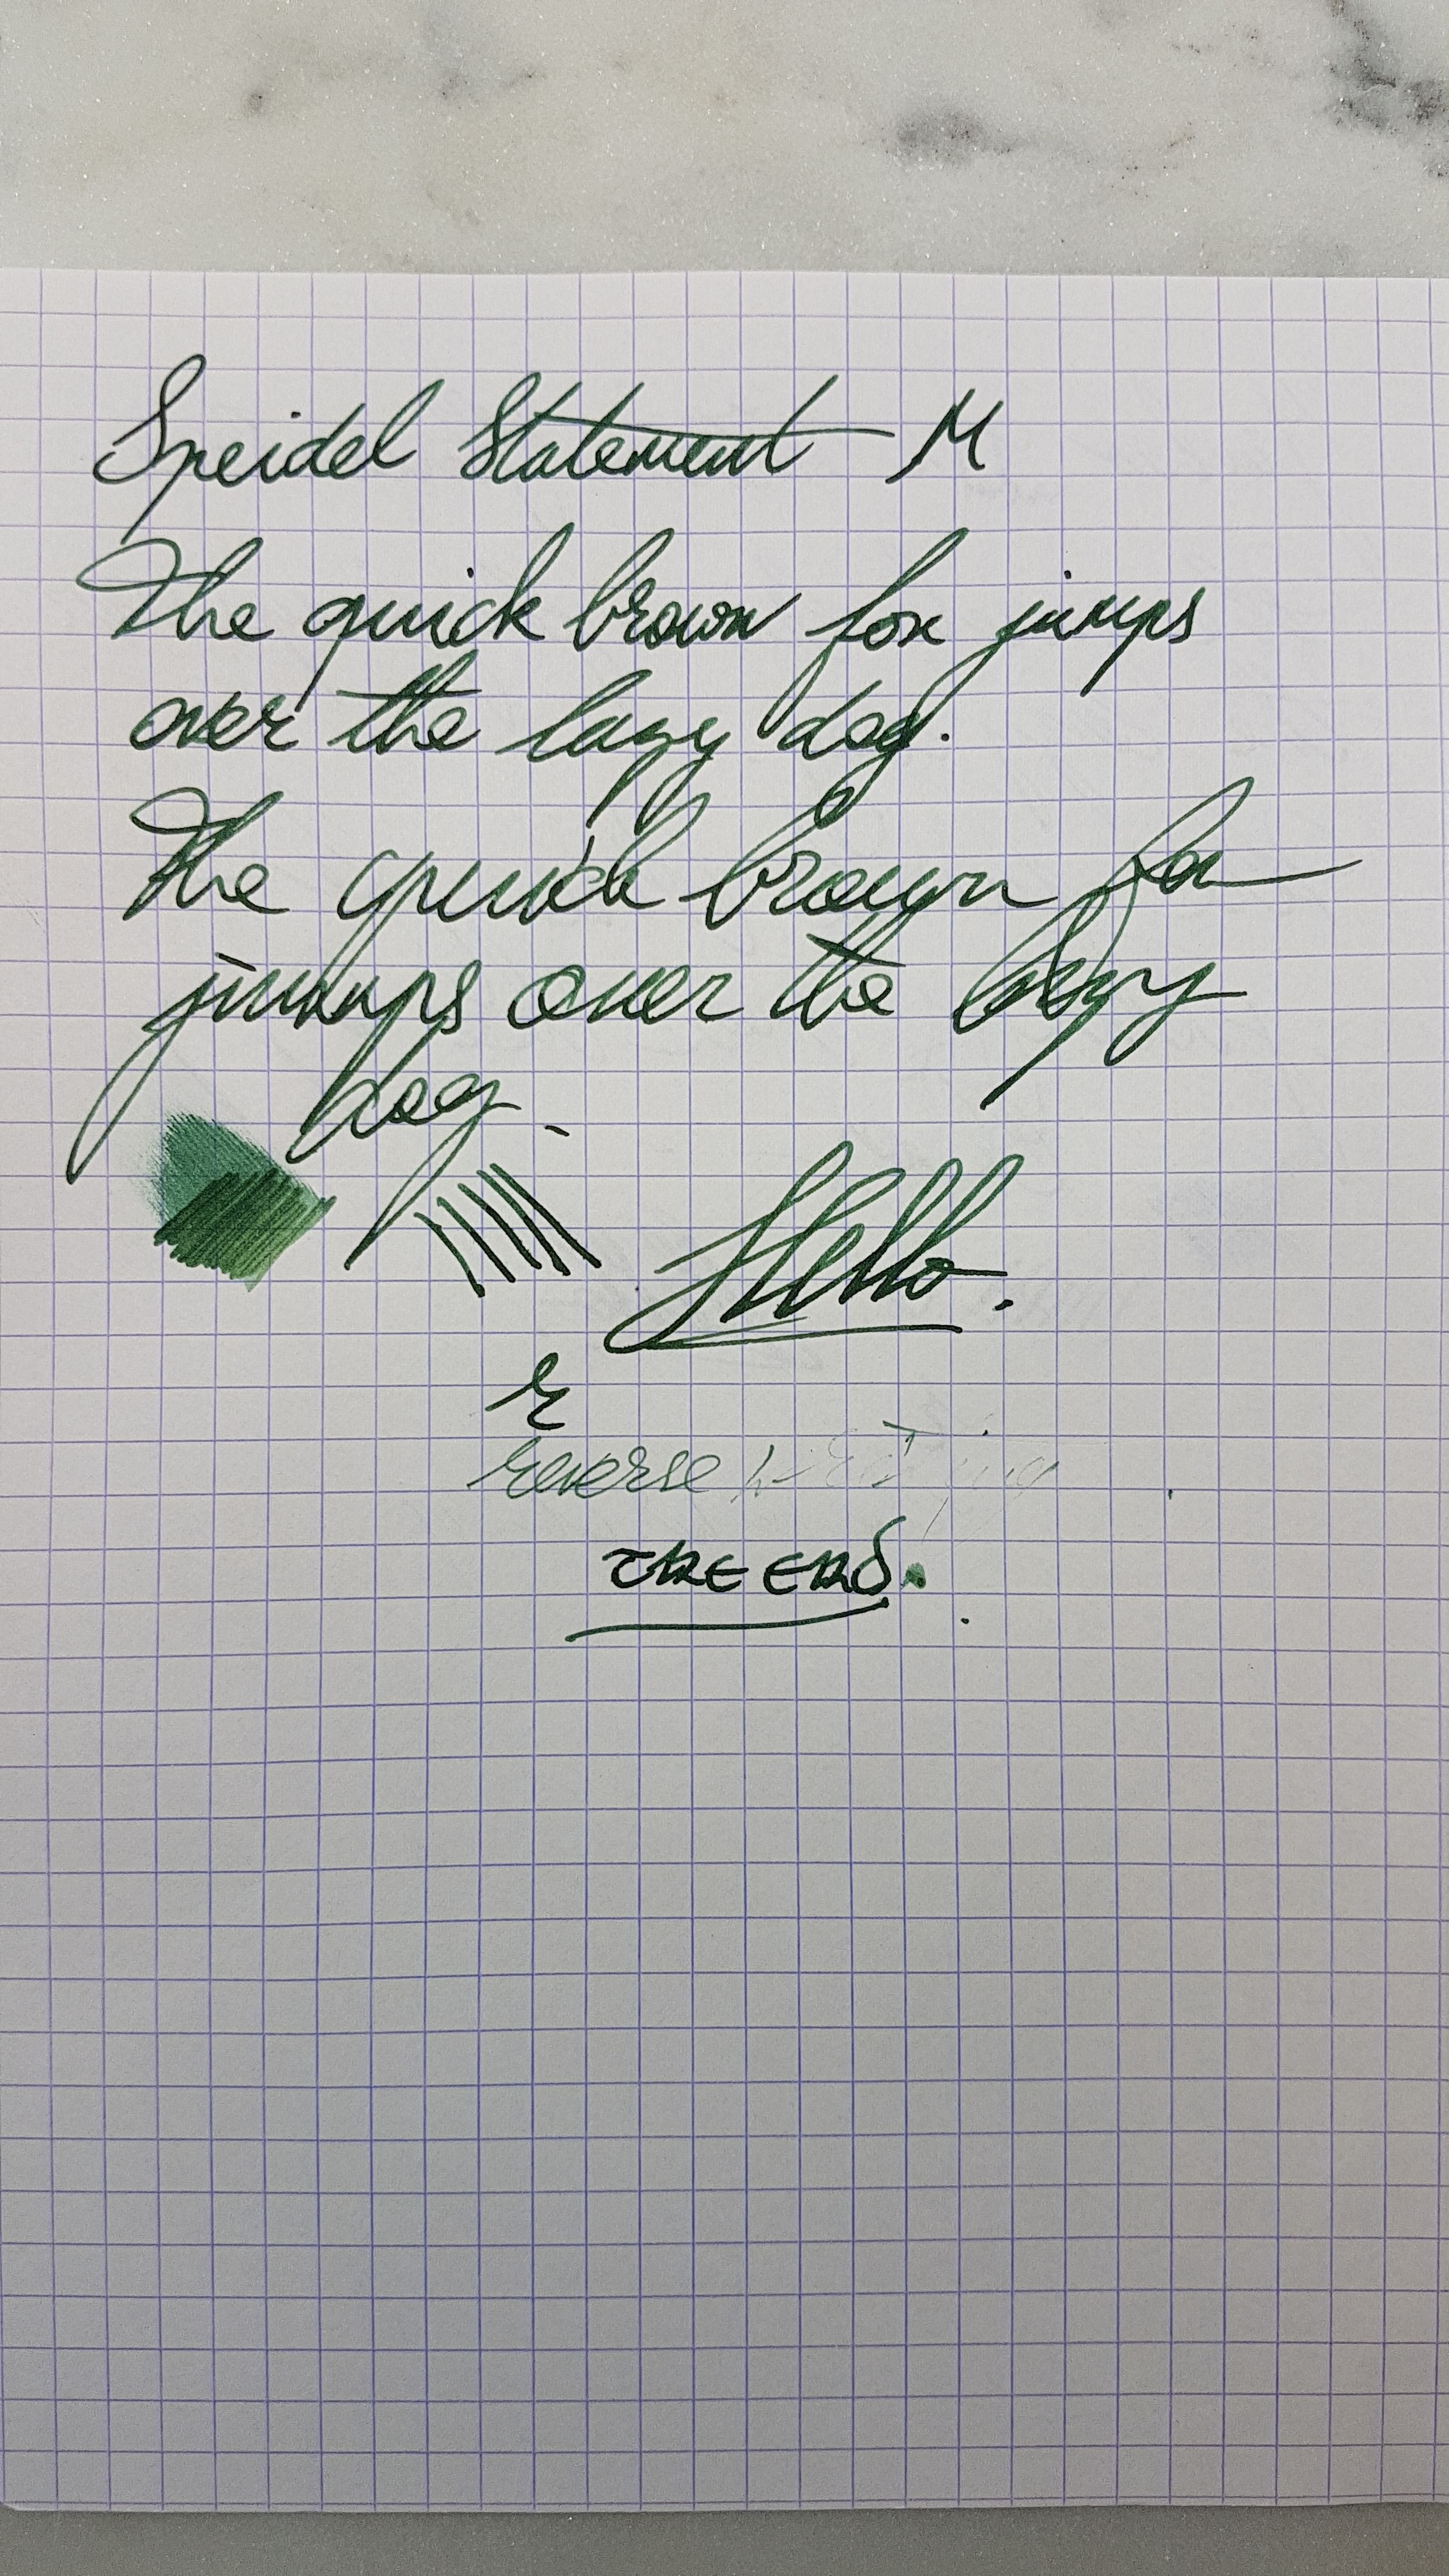 Speidel Statement M
The quick brown fox jumps
over the lazy dog.
The quick brown fox
jumps over the lazy
dog.
Hello.
r
reverse writing
THE END.